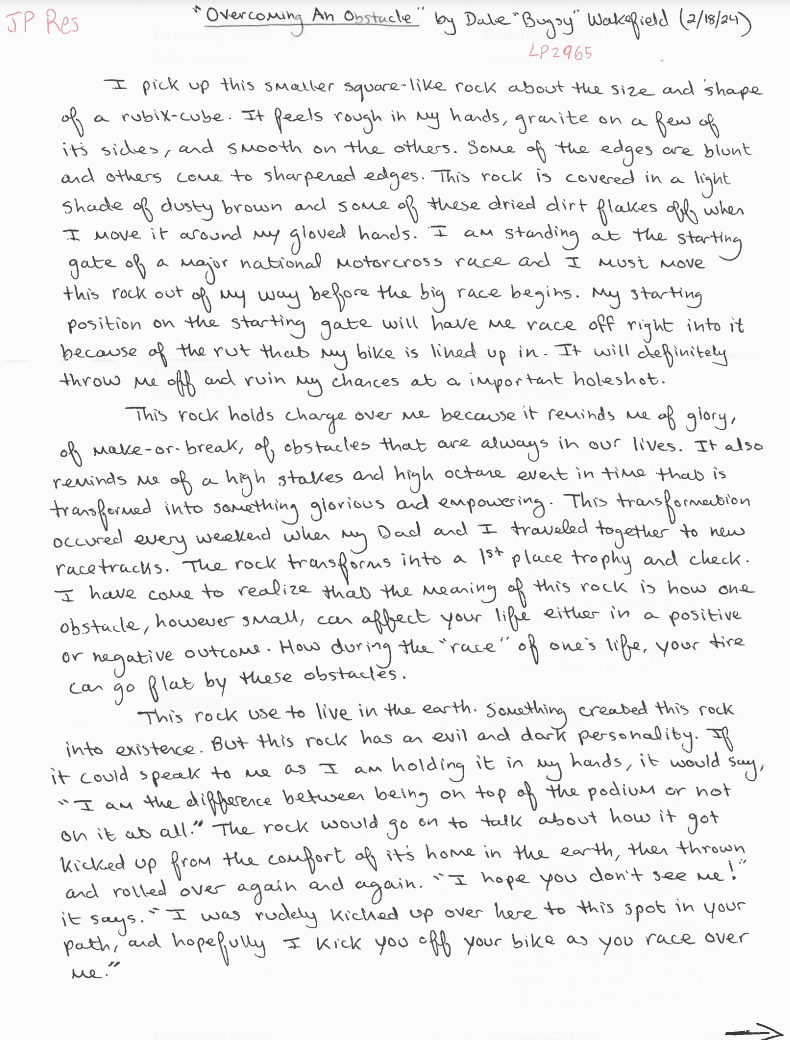 JP Res
"Overcoming An Obstacle" by Dale "Bugsy" Wakefield (2/18/24)
LP2965
I pick up this smaller square-like rock about the size and shape
of a rubix-cube. It feels rough in my hands, granite on a few of
it's sides, and smooth on the others. Some of the edges are blunt
and others come to sharpened edges. This rock is covered in a light
shade of dusty brown and some of these dried dirt flakes off when
I move it around my gloved hands. I am standing at the starting
gate of a major national motorcross race and I must move
this rock out of my way before the big race begins. My starting
position on the starting gate will have me race off right into it
because of the rut that my bike is lined up in. It will definitely
throw me off and ruin my chances at a important holeshot.
This rock holds charge over me because it reminds me of glory,
of make-or-break, of obstacles that are always in our lives. It also
reminds me of a high stakes and high octane event in time that is
transformed into something glorious and empowering. This transformation
occured every weekend when my Dad and I traveled together to new
racetracks. The rock transforms into a 1st place trophy and check.
I have come to realize that the meaning of this rock is how one
obstacle, however small, can affect your life either in a positive
or negative outcome. How during the "race" of one's life, your tire
can go flat by these obstacles.
This rock use to live in the earth. Something created this rock
into existence. But this rock has an evil and dark personality. If
it could speak to me as I am holding it in my hands, it would say,
"I am the difference between being on top of the podium or not
on it at all." The rock would go on to talk about how it got
kicked up from the comfort of it's home in the earth, then thrown
and rolled over again and again. "I hope you don't see me!"
it says. "I was rudely kicked up over here to this spot in your
path, and hopefully I kick you off your bike as you race over
me."